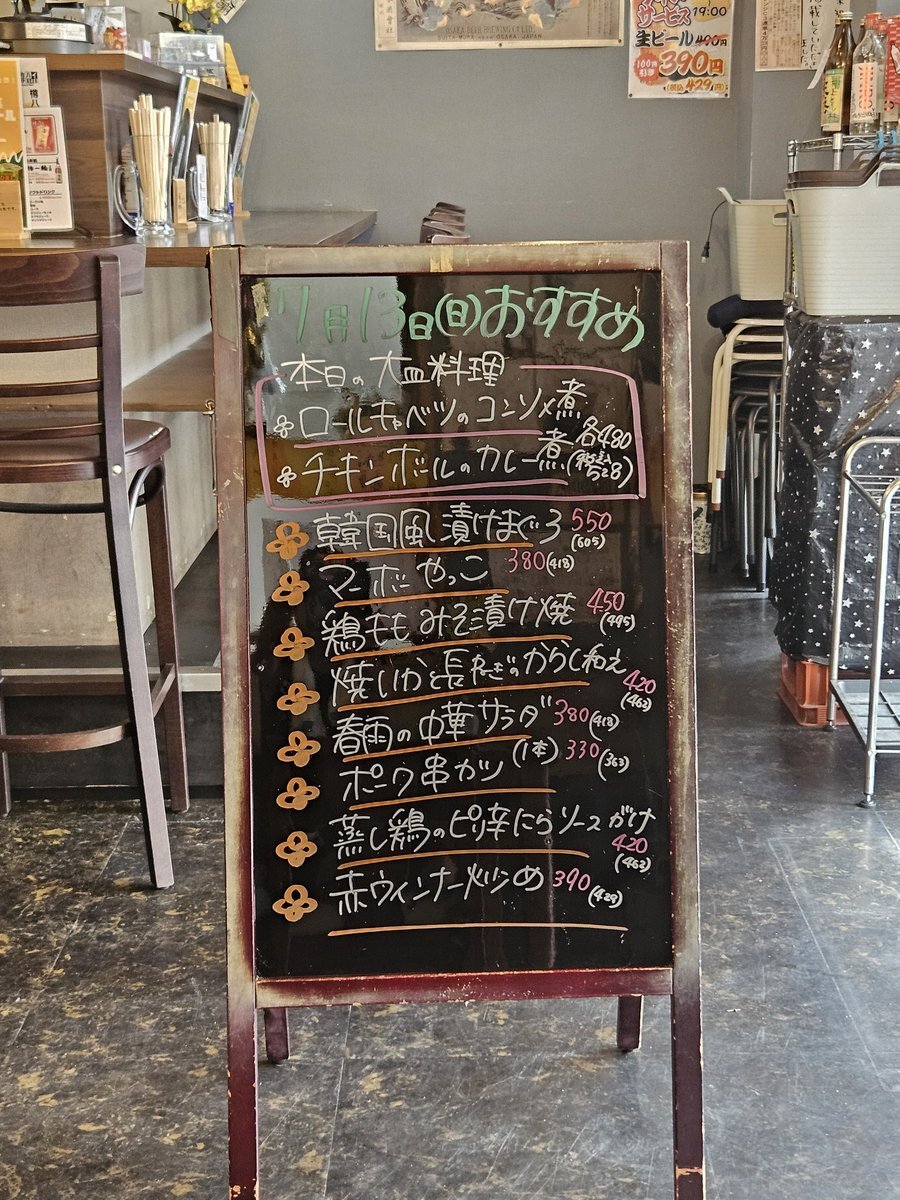 OSAKA BEER BREWING CO., LTD.
SUITA-MURA NEAR OSAKA, JAPAN.
サービス 19:00
生ビール 490円
100円引き 390円
(税込 429円)
7月13日(日)おすすめ
本日の大皿料理
ロールキャベツのコンソメ煮
各480
チキンボールのカレー煮 (税込528)
韓国風漬けまぐろ 550
(605)
マーボーやっこ 380(418)
鶏ももみそ漬け焼 450
(495)
焼いかと長ねぎのからし和え
420
(462)
春雨の中華サラダ 380(418)
ポーク串カツ (1本) 330
(363)
蒸し鶏のピリ辛にらソースがけ
420
(462)
赤ウィンナー炒め 390
(429)